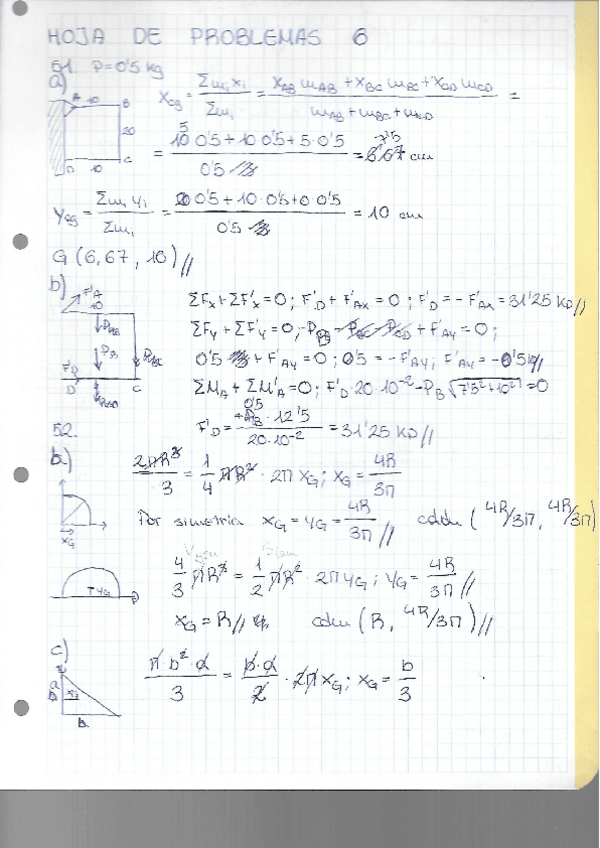 HOJA DE PROBLEMAS 6
51. P=0'5 kg
a)
A 10 B
20
D 10 C
X_cg = Σm_i x_i / Σm_i = (x_AB m_AB + x_BC m_BC + x_CD m_CD) / (m_AB + m_BC + m_CD) =
= (5 0'5 + 10 0'5 + 5 0'5) / 0'5 = 6'67 cm
7'5
Y_cg = Σm_i y_i / Σm_i = (20 0'5 + 10·0'5 + 0·0'5) / 0'5 = 10 cm
G (6,67, 10)//
b)
F'A
10
P_AB
P_B
P_BC
F'D
D
P_CD
C
ΣF_x + ΣF'_x = 0; F'_D + F'_Ax = 0; F'_D = -F'_Ax = 31'25 KD//
ΣF_y + ΣF'_y = 0; -P_B - P_BC - P_CD + F'_Ay = 0;
0'5 + F'_Ay = 0; 0'5 = -F'_Ay; F'_Ay = -0'5 k//
ΣM_A + ΣM'_A = 0; F'_D·20·10^-2 - P_B √(7'5² + 10²) = 0
F'_D = (0'5 P_B · 12'5) / (20·10^-2) = 31'25 KD//
52.
b.)
2πR³ / 3 = 1/4 πR² · 2π x_G; x_G = 4R / 3π
x_G
Por simetria x_G = y_G = 4R / 3π // cdm (4R/3π, 4R/3π)
4/3 πR³ = 1/2 πR² · 2π y_G; y_G = 4R / 3π //
y_G
x_G = R// cdm (R, 4R/3π)//
c)
π·b²·a / 3 = b·a / 2 · 2π x_G; x_G = b / 3